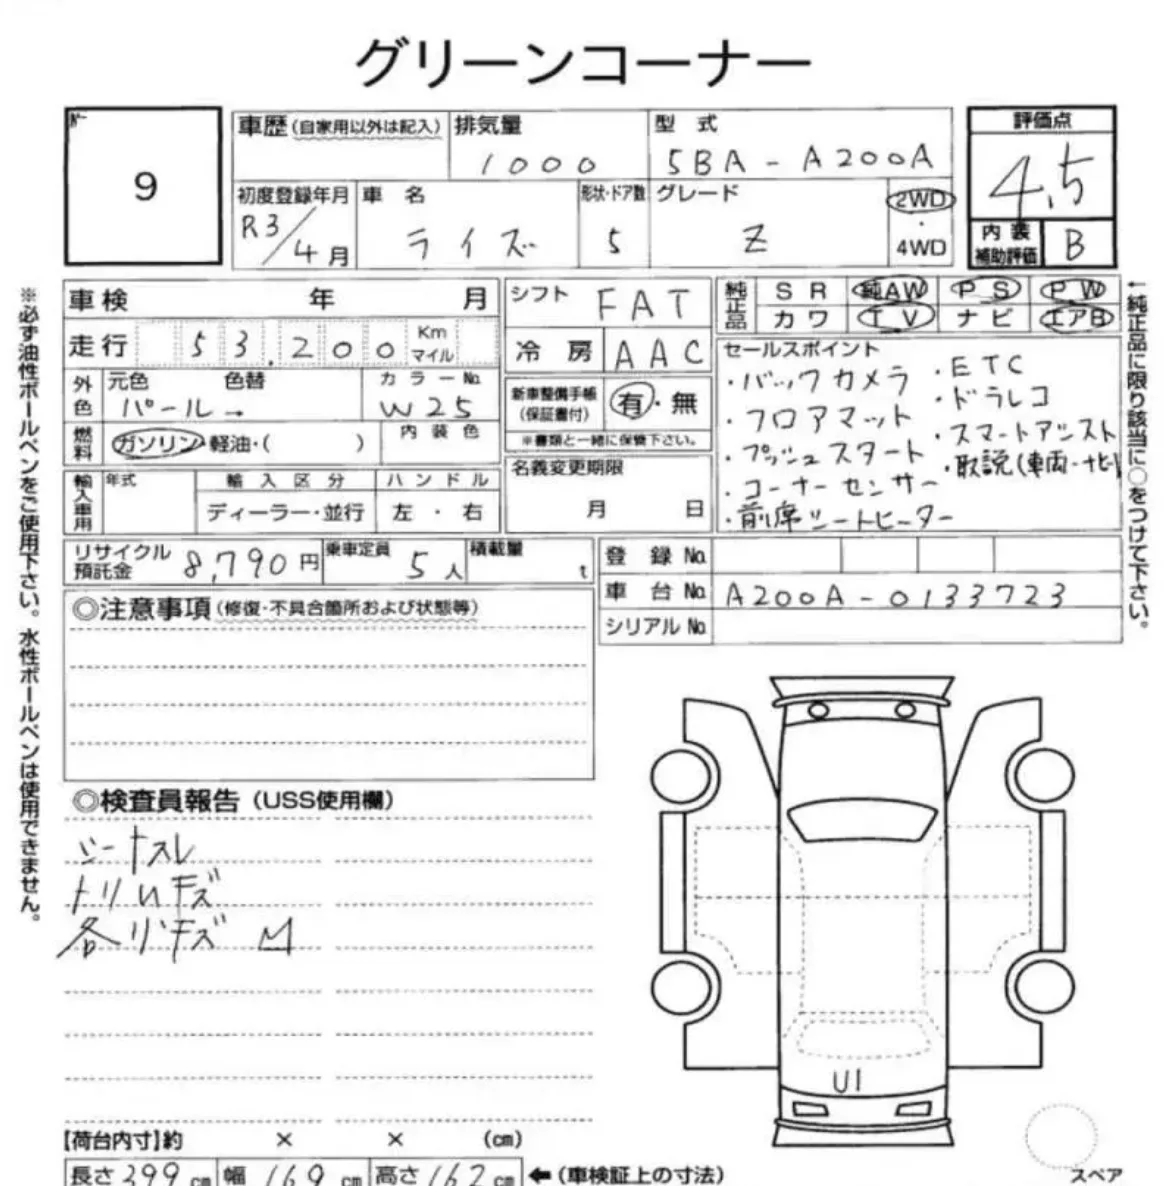 グリーンコーナー
9
車歴(自家用以外は記入)
排気量
1000
型式
5BA-A200A
評価点
4.5
初度登録年月
R3/4月
車名
ライズ
形状・ドア数
5
グレード
Z
2WD
・
4WD
内装
補助評価
B
車検 年 月
シフト
FAT
純正品
SR 純AW PS PW
カワ TV ナビ エアB
走行 53,200 Km
マイル
冷房 AAC
外色
元色 色替
パール→
カラーNo.
W25
新車整備手帳
(保証書付)
有・無
※書類と一緒に保管下さい。
燃料
ガソリン・軽油・( )
内装色
名義変更期限
月 日
輸入車用
年式
輸入区分
ディーラー・並行
ハンドル
左・右
セールスポイント
・バックカメラ
・フロアマット
・プッシュスタート
・コーナーセンサー
・前席シートヒーター
・ETC
・ドラレコ
・スマートアシスト
・取説(車両・ナビ)
リサイクル
預託金
8,790円
乗車定員
5人
積載量
t
登録No.
車台No. A200A-0133723
シリアルNo.
◎注意事項(修復・不具合箇所および状態等)
◎検査員報告(USS使用欄)
シートスレ
トリムキズ
U1
【荷台内寸】約 × × (cm)
長さ399cm 幅169cm 高さ162cm ←(車検証上の寸法)
スペア
※必ず油性ボールペンをご使用下さい。水性ボールペンは使用できません。
←純正品に限り該当に○をつけて下さい。